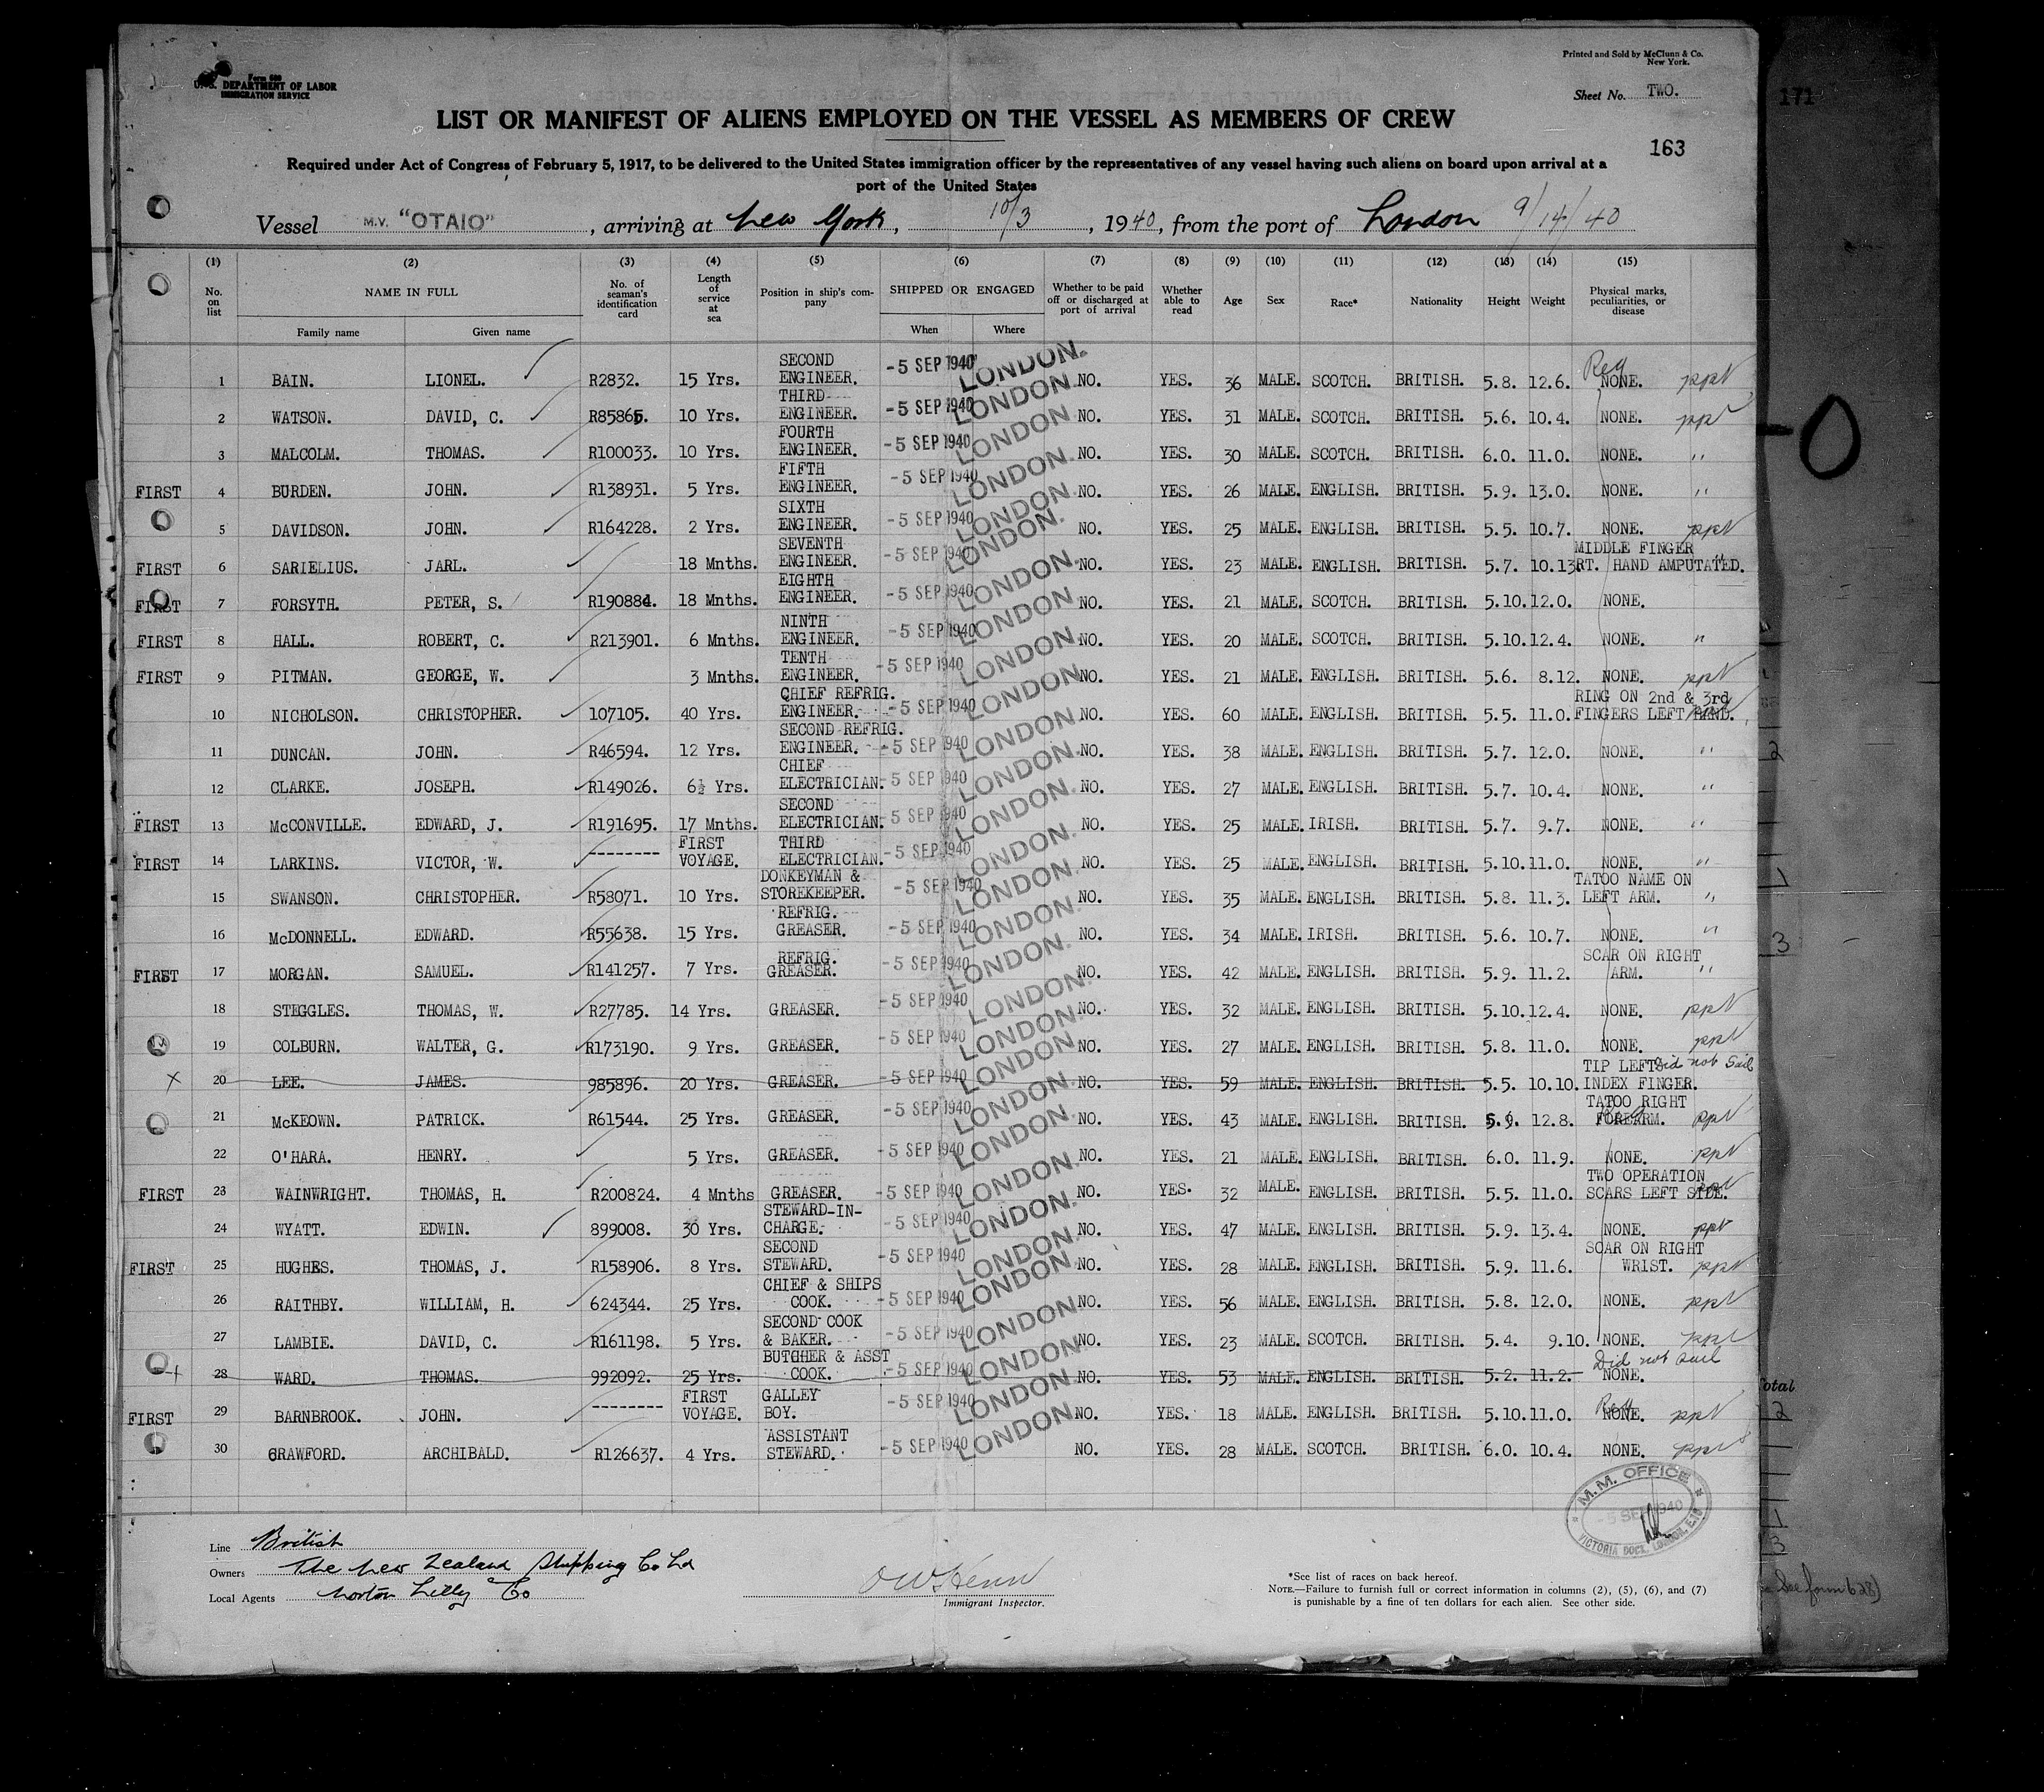 Printed and Sold by McClunn & Co.
New York.
Form 680
U. S. DEPARTMENT OF LABOR
IMMIGRATION SERVICE
Sheet No. TWO.
171
LIST OR MANIFEST OF ALIENS EMPLOYED ON THE VESSEL AS MEMBERS OF CREW
163
Required under Act of Congress of February 5, 1917, to be delivered to the United States immigration officer by the representatives of any vessel having such aliens on board upon arrival at a
port of the United States
Vessel M.V. "OTAIO", arriving at New York, 10/3, 1940, from the port of London 9/14/40
(1) (2) (3) (4) (5) (6) (7) (8) (9) (10) (11) (12) (13) (14) (15)
No. on list NAME IN FULL Family name Given name No. of seaman's identification card Length of service at sea Position in ship's company SHIPPED OR ENGAGED When Where Whether to be paid off or discharged at port of arrival Whether able to read Age Sex Race* Nationality Height Weight Physical marks, peculiarities, or disease
1 BAIN. LIONEL. R2832. 15 Yrs. SECOND ENGINEER. -5 SEP 1940 LONDON. NO. YES. 36 MALE. SCOTCH. BRITISH. 5.8. 12.6. Reg NONE. ppt
2 WATSON. DAVID, C. R85865. 10 Yrs. THIRD ENGINEER. -5 SEP 1940 LONDON. NO. YES. 31 MALE. SCOTCH. BRITISH. 5.6. 10.4. NONE. ppt
3 MALCOLM. THOMAS. R100033. 10 Yrs. FOURTH ENGINEER. -5 SEP 1940 LONDON. NO. YES. 30 MALE. SCOTCH. BRITISH. 6.0. 11.0. NONE. "
FIRST 4 BURDEN. JOHN. R138931. 5 Yrs. FIFTH ENGINEER. -5 SEP 1940 LONDON. NO. YES. 26 MALE. ENGLISH. BRITISH. 5.9. 13.0. NONE. "
5 DAVIDSON. JOHN. R164228. 2 Yrs. SIXTH ENGINEER. -5 SEP 1940 LONDON. NO. YES. 25 MALE. ENGLISH. BRITISH. 5.5. 10.7. NONE. ppt
FIRST 6 SARIELIUS. JARL. 18 Mnths. SEVENTH ENGINEER. -5 SEP 1940 LONDON. NO. YES. 23 MALE. ENGLISH. BRITISH. 5.7. 10.13. MIDDLE FINGER RT. HAND AMPUTATED. "
FIRST 7 FORSYTH. PETER, S. R190884. 18 Mnths. EIGHTH ENGINEER. -5 SEP 1940 LONDON. NO. YES. 21 MALE. SCOTCH. BRITISH. 5.10. 12.0. NONE.
FIRST 8 HALL. ROBERT, C. R213901. 6 Mnths. NINTH ENGINEER. -5 SEP 1940 LONDON. NO. YES. 20 MALE. SCOTCH. BRITISH. 5.10. 12.4. NONE. "
FIRST 9 PITMAN. GEORGE, W. 3 Mnths. TENTH ENGINEER. -5 SEP 1940 LONDON. NO. YES. 21 MALE. ENGLISH. BRITISH. 5.6. 8.12. NONE. ppt
10 NICHOLSON. CHRISTOPHER. 107105. 40 Yrs. CHIEF REFRIG. ENGINEER. -5 SEP 1940 LONDON. NO. YES. 60 MALE. ENGLISH. BRITISH. 5.5. 11.0. RING ON 2nd & 3rd FINGERS LEFT HAND.
11 DUNCAN. JOHN. R46594. 12 Yrs. SECOND REFRIG. ENGINEER. -5 SEP 1940 LONDON. NO. YES. 38 MALE. ENGLISH. BRITISH. 5.7. 12.0. NONE. "
12 CLARKE. JOSEPH. R149026. 6½ Yrs. CHIEF ELECTRICIAN. -5 SEP 1940 LONDON. NO. YES. 27 MALE. ENGLISH. BRITISH. 5.7. 10.4. NONE. "
FIRST 13 McCONVILLE. EDWARD, J. R191695. 17 Mnths. SECOND ELECTRICIAN. -5 SEP 1940 LONDON. NO. YES. 25 MALE. IRISH. BRITISH. 5.7. 9.7. NONE. "
FIRST 14 LARKINS. VICTOR, W. --------- FIRST VOYAGE. THIRD ELECTRICIAN. -5 SEP 1940 LONDON. NO. YES. 25 MALE. ENGLISH. BRITISH. 5.10. 11.0. NONE. "
15 SWANSON. CHRISTOPHER. R58071. 10 Yrs. DONKEYMAN & STOREKEEPER. -5 SEP 1940 LONDON. NO. YES. 35 MALE. ENGLISH. BRITISH. 5.8. 11.3. TATOO NAME ON LEFT ARM. "
16 McDONNELL. EDWARD. R55638. 15 Yrs. REFRIG. GREASER. -5 SEP 1940 LONDON. NO. YES. 34 MALE. IRISH. BRITISH. 5.6. 10.7. NONE. "
FIRST 17 MORGAN. SAMUEL. R141257. 7 Yrs. REFRIG. GREASER. -5 SEP 1940 LONDON. NO. YES. 42 MALE. ENGLISH. BRITISH. 5.9. 11.2. SCAR ON RIGHT ARM. "
18 STEGGLES. THOMAS, W. R27785. 14 Yrs. GREASER. -5 SEP 1940 LONDON. NO. YES. 32 MALE. ENGLISH. BRITISH. 5.10. 12.4. NONE. ppt
19 COLBURN. WALTER, G. R173190. 9 Yrs. GREASER. -5 SEP 1940 LONDON. NO. YES. 27 MALE. ENGLISH. BRITISH. 5.8. 11.0. NONE. ppt
x 20 LEE. JAMES. 985896. 20 Yrs. GREASER. -5 SEP 1940 LONDON. NO. YES. 59 MALE. ENGLISH. BRITISH. 5.5. 10.10. TIP LEFT INDEX FINGER. Did not Sail
21 McKEOWN. PATRICK. R61544. 25 Yrs. GREASER. -5 SEP 1940 LONDON. NO. YES. 43 MALE. ENGLISH. BRITISH. 5.9. 12.8. TATOO RIGHT FOREARM. Reg ppt
22 O'HARA. HENRY. 5 Yrs. GREASER. -5 SEP 1940 LONDON. NO. YES. 21 MALE. ENGLISH. BRITISH. 6.0. 11.9. NONE. ppt
FIRST 23 WAINWRIGHT. THOMAS, H. R200824. 4 Mnths GREASER. -5 SEP 1940 LONDON. NO. YES. 32 MALE. ENGLISH. BRITISH. 5.5. 11.0. TWO OPERATION SCARS LEFT SIDE. ppt
24 WYATT. EDWIN. 899008. 30 Yrs. STEWARD-IN-CHARGE. -5 SEP 1940 LONDON. NO. YES. 47 MALE. ENGLISH. BRITISH. 5.9. 13.4. NONE. ppt
FIRST 25 HUGHES. THOMAS, J. R158906. 8 Yrs. SECOND STEWARD. -5 SEP 1940 LONDON. NO. YES. 28 MALE. ENGLISH. BRITISH. 5.9. 11.6. SCAR ON RIGHT WRIST. ppt
26 RAITHBY. WILLIAM, H. 624344. 25 Yrs. CHIEF & SHIPS COOK. -5 SEP 1940 LONDON. NO. YES. 56 MALE. ENGLISH. BRITISH. 5.8. 12.0. NONE. ppt
27 LAMBIE. DAVID, C. R161198. 5 Yrs. SECOND COOK & BAKER. -5 SEP 1940 LONDON. NO. YES. 23 MALE. SCOTCH. BRITISH. 5.4. 9.10. NONE. ppt
28 WARD. THOMAS. 992092. 25 Yrs. BUTCHER & ASST COOK. -5 SEP 1940 LONDON. NO. YES. 53 MALE. ENGLISH. BRITISH. 5.2. 11.2. Did not Sail NONE.
FIRST 29 BARNBROOK. JOHN. --------- FIRST VOYAGE. GALLEY BOY. -5 SEP 1940 LONDON. NO. YES. 18 MALE. ENGLISH. BRITISH. 5.10. 11.0. Reg NONE. ppt
30 CRAWFORD. ARCHIBALD. R126637. 4 Yrs. ASSISTANT STEWARD. -5 SEP 1940 LONDON. NO. YES. 28 MALE. SCOTCH. BRITISH. 6.0. 10.4. NONE. ppt
M. M. OFFICE
-5 SEP 1940
VICTORIA DOCK, LONDON, E.16
Line British
Owners The New Zealand Shipping Co Ld
Local Agents Norton Lilly & Co
Immigrant Inspector.
*See list of races on back hereof.
NOTE.—Failure to furnish full or correct information in columns (2), (5), (6), and (7)
is punishable by a fine of ten dollars for each alien. See other side.
see form 628)